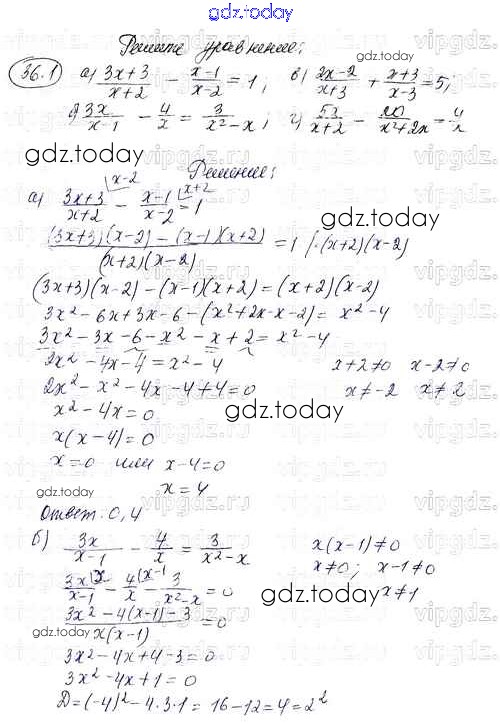 gdz.today
Решите уравнение:
36.1 а) (3x+3)/(x+2) - (x-1)/(x-2) = 1, в) (2x-2)/(x+3) + (x+3)/(x-3) = 5;
3x/(x-1) - 4/x = 3/(x²-x); г) /(x+2) - 20/(x²+2x) = 4/x
Решение:
а) (3x+3)/(x+2) |x-2 - (x-1)/(x-2) |x+2 = 1
((3x+3)(x-2) - (x-1)(x+2))/((x+2)(x-2)) = 1 | · (x+2)(x-2)
(3x+3)(x-2) - (x-1)(x+2) = (x+2)(x-2)
3x² - 6x + 3x - 6 - (x² + 2x - x - 2) = x² - 4
3x² - 3x - 6 - x² - x + 2 = x² - 4
2x² - 4x - 4 = x² - 4 x+2≠0 x-2≠0
2x² - x² - 4x - 4 + 4 = 0 x≠-2 x≠2
x² - 4x = 0
x(x-4) = 0
x=0 или x-4=0
x=4
Ответ: 0, 4
б) 3x/(x-1) - 4/x = 3/(x²-x) x(x-1)≠0
3x/(x-1) |x - 4/x |x-1 - 3/(x²-x) = 0 x≠0; x-1≠0
x≠1
(3x² - 4(x-1) - 3)/(x(x-1)) = 0
3x² - 4x + 4 - 3 = 0
3x² - 4x + 1 = 0
D = (-4)² - 4·3·1 = 16 - 12 = 4 = 2²